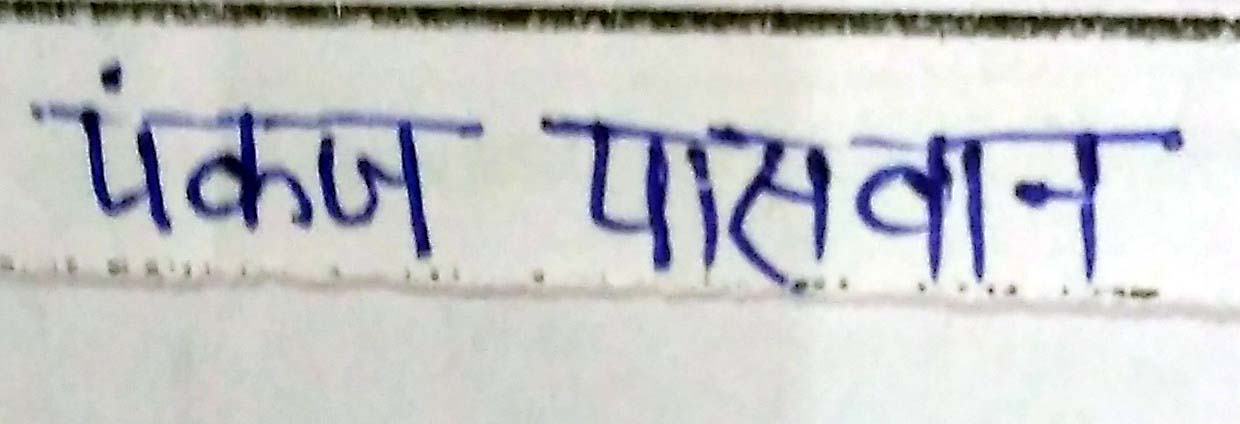 पंकज पासवान